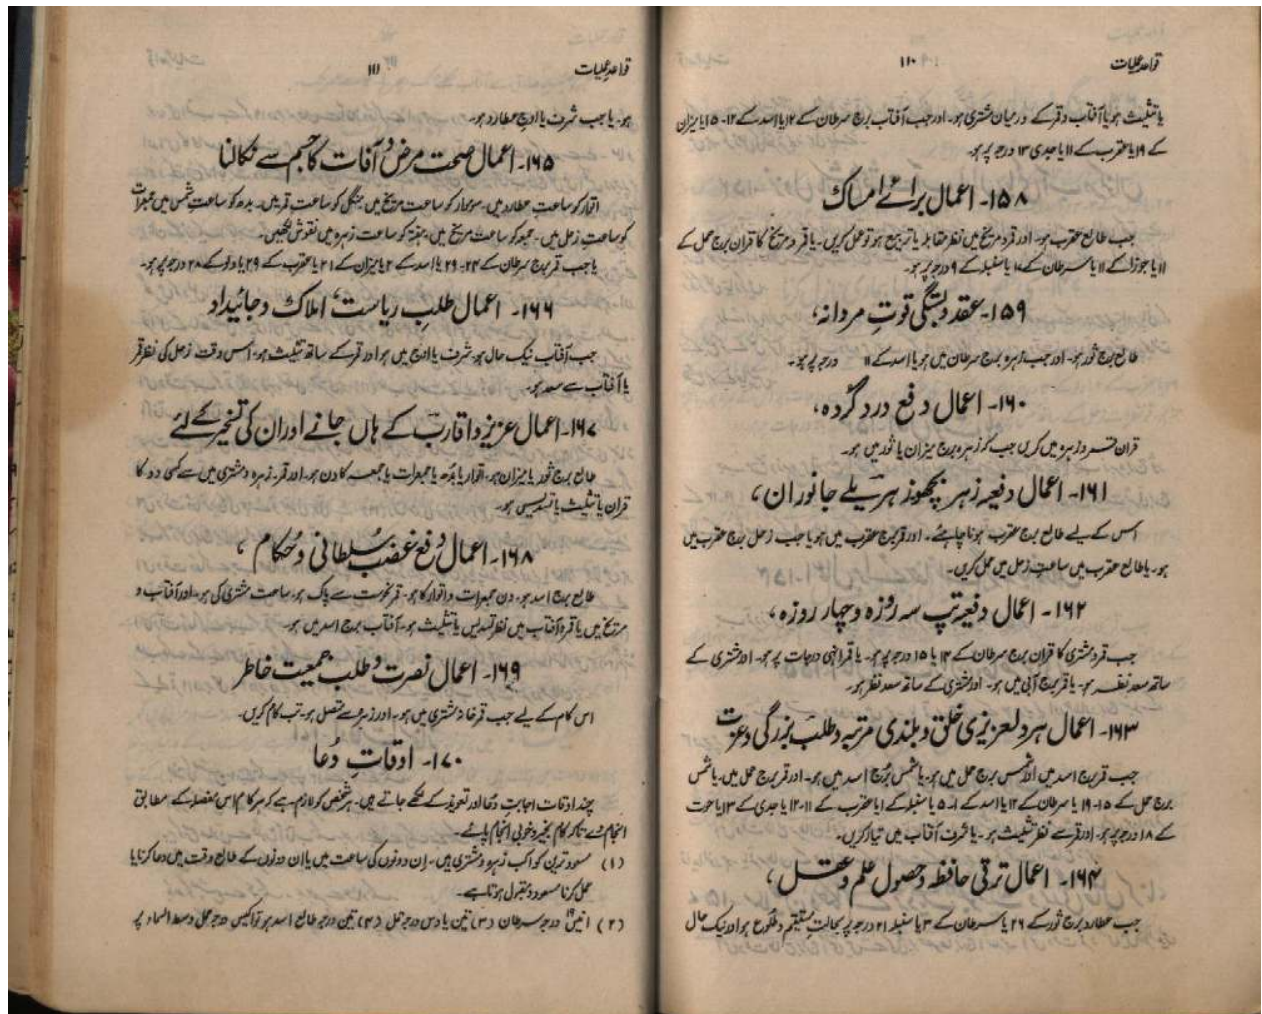 قواعد عملیات
۱۱۰
یا تثلیث ہو یا آفتاب و قمر کے درمیان مشتری ہو۔ اور جب آفتاب برج سرطان کے ۱۲ یا اسد کے ۱۲-۱۵ یا میزان
کے ۱۹ یا عقرب کے ۱۱ یا جدی ۱۳ درجہ پر ہو۔
۱۵۸- اعمال برائے امساک
جب طالع عقرب ہو۔ اور قمر و مریخ میں نظر مقابلہ یا تربیع ہو تو عمل کریں۔ یا قمر و مریخ کا قران برج حمل کے
۱۱ یا جوزا کے ۱۱ یا سرطان کے ۷ یا سنبلہ کے ۹ درجہ پر ہو۔
۱۵۹- عقد و بستگی قوتِ مردانہ،
طالع برج ثور ہو۔ اور جب زہرہ برج سرطان میں ہو یا اسد کے ۱۱ درجہ پر ہو۔
۱۶۰- اعمال دفع درد گردہ،
قران قمر و زہرہ میں کریں جب کہ زہرہ برج میزان یا ثور میں ہو۔
۱۶۱- اعمال دفعیہ زہر بچھو زہریلے جانوران،
اس کے لیے طالع برج عقرب ہونا چاہئے۔ اور قمر برج عقرب میں ہو یا جب زحل برج عقرب میں
ہو۔ یا طالع عقرب میں ساعتِ زحل میں عمل کریں۔
۱۶۲- اعمال دفعیہ تپ سہ روزہ و چہار روزہ،
جب قمر و مشتری کا قران برج سرطان کے ۱۴ یا ۱۵ درجہ پر ہو۔ یا قمر انہی درجات پر ہو۔ اور مشتری کے
ساتھ سعد نظر ہو۔ یا قمر برج آبی میں ہو۔ اور مشتری کے ساتھ سعد نظر ہو۔
۱۶۳- اعمال ہر دلعزیزی خلق و بلندی مرتبہ و طلب بزرگی و عزت
جب قمر برج اسد میں اور شمس برج حمل میں ہو۔ یا شمس برج اسد میں ہو۔ اور قمر برج حمل میں۔ یا شمس
برج حمل کے ۱۵-۱۹ یا سرطان کے ۱۲ یا اسد کے ۱-۵ یا سنبلہ کے ۱ یا عقرب کے ۱۱-۱۲ یا جدی کے ۱۳ یا حوت
کے ۱۸ درجہ پر ہو۔ اور قمر سے نظر تثلیث ہو۔ یا شرف آفتاب میں تیار کریں۔
۱۶۴- اعمال ترقی حافظہ و حصول علم و عقل،
جب عطارد برج ثور کے ۲۶ یا سرطان کے ۳ یا سنبلہ ۲۱ درجہ پر بحالتِ مستقیم و طلوع ہو اور نیک حال
قواعد عملیات
۱۱۱
ہو۔ یا جب شرف یا اوج عطارد ہو۔
۱۶۵- اعمال صحت مرض و آفات کا جسم سے نکالنا
اتوار کو ساعتِ عطارد میں۔ سوموار کو ساعت مریخ میں، منگل کو ساعت قمر میں۔ بدھ کو ساعتِ شمس میں جمعرات
کو ساعتِ زحل میں۔ جمعہ کو ساعت مریخ میں، ہفتہ کو ساعت زہرہ میں نقوش لکھیں۔
یا جب قمر برج سرطان کے ۲۴-۲۹ یا اسد کے ۲ یا میزان کے ۲۱ یا عقرب کے ۲۹ یا دلو کے ۲۸ درجہ پر ہو۔
۱۶۶- اعمال طلبِ ریاست، املاک و جائیداد
جب آفتاب نیک حال ہو، شرف یا اوج میں ہو اور قمر کے ساتھ تثلیث ہو۔ اس وقت زحل کی نظر قمر
یا آفتاب سے سعد ہو۔
۱۶۷- اعمال عزیز و اقارب کے ہاں جانے اور ان کی تسخیر کے لئے
طالع برج ثور یا میزان ہو۔ اتوار یا بدھ یا جمعرات یا جمعہ کا دن ہو۔ اور قمر۔ زہرہ و مشتری میں سے کسی دو کا
قران یا تثلیث یا تسدیس ہو۔
۱۶۸- اعمال دفع غضب سلطانی و حکام،
طالع برج اسد ہو۔ دن جمعرات و اتوار کا ہو۔ قمر نحوست سے پاک ہو۔ ساعت مشتری کی ہو۔ اور آفتاب و
مریخ میں یا قمر و آفتاب میں نظر تسدیس یا تثلیث ہو۔ آفتاب برج اسد میں ہو۔
۱۶۹- اعمال نصرت و طلب جمعیت خاطر
اس کام کے لیے جب قمر خانہ مشتری میں ہو۔ اور زہرہ سے متصل ہو۔ تب کام کریں۔
۱۷۰- اوقاتِ دُعا
چند اوقات اجابتِ دُعا اور تعویذ کے لکھے جاتے ہیں۔ ہر شخص کو لازم ہے کہ ہر کام اس مفصلہ کے مطابق
انجام دے تاکہ کام بخیر و خوبی انجام پائے۔
(۱) مسعود ترین کواکب زہرہ و مشتری ہیں۔ اِن دونوں کی ساعت میں یا ان دونوں کے طالع وقت میں دعا کرنا یا
عمل کرنا مسعود و مقبول ہوتا ہے۔
(۲) انیس ۱۹ درجہ سرطان (۳) تین یا دس درجہ حمل (۴) تین درجہ طالع اسد ہو تو اکیس درجہ حمل وسط السماء پر